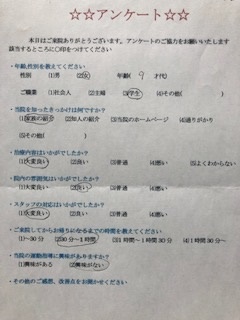 ☆☆アンケート☆☆
本日はご来院ありがとうございます。アンケートのご協力をお願いいたします
該当するところに○印をつけてください
・年齢,性別を教えてください
性別 (1)男 (2)女 年齢( 9 才代)
ご職業 (1)社会人 (2)主婦 (3)学生 (4)その他( )
・当院を知ったきっかけは何ですか?
(1)家族の紹介 (2)知人の紹介 (3)当院のホームページ (4)通りがかり
(5)その他( )
・治療内容はいかがでしたか?
(1)大変良い (2)良い (3)普通 (4)悪い (5)よくわからない
・院内の雰囲気はいかがでしたか?
(1)大変良い (2)良い (3)普通 (4)悪い
・スタッフの対応はいかがでしたか?
(1)大変良い (2)良い (3)普通 (4)悪い
・ご来院してからお帰りになるまでの時間を教えてください
(1)~30分 (2)30分~1時間 (3)1時間~1時間30分 (4)1時間30分~
・当院の運動指導に興味がありますか?
(1)興味がある (2)興味がない
・その他のご感想、改善点をお聞かせください